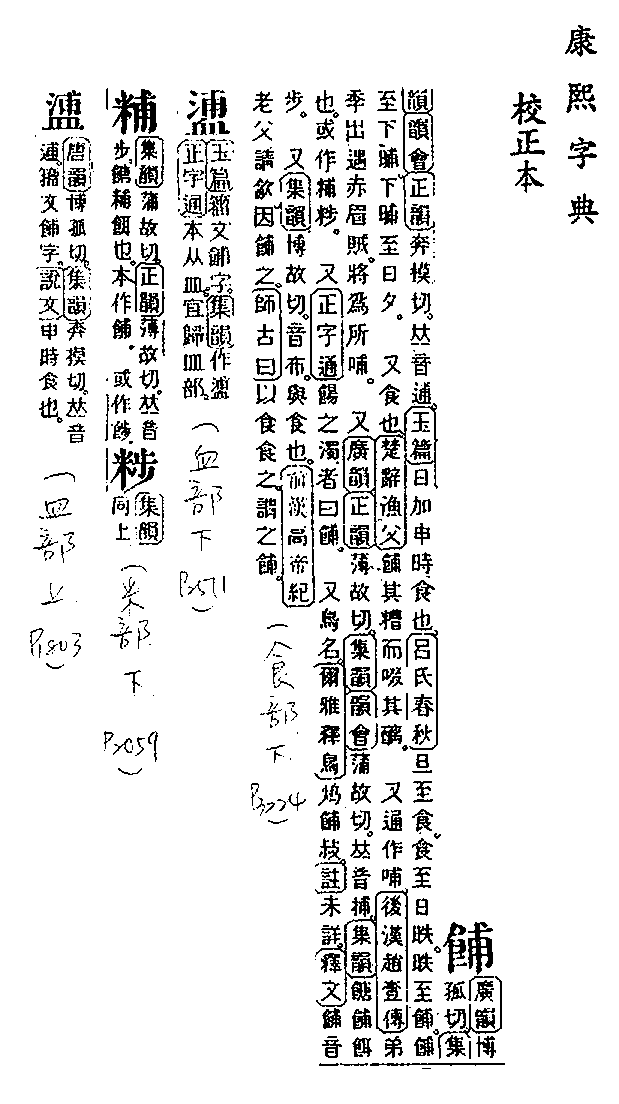 康熙字典
校正本
餔
廣韻博
孤切集
韻韻會正韻奔模切𠀤音逋玉篇日加申時食也呂氏春秋旦至食食至日昳昳至餔餔
至下晡下晡至日夕 又食也楚辭漁父餔其糟而啜其醨 又通作哺後漢趙壹傳弟
季出遇赤眉賊將爲所哺 又廣韻正韻薄故切集韻韻會蒲故切𠀤音捕集韻餹餔餌
也或作䊇𥹴 又正字通餳之濁者曰餔 又鳥名爾雅釋鳥鳭餔敊註未詳釋文餔音
步 又集韻博故切音布與食也前漢高帝紀
老父請飲因餔之師古曰以食食之謂之餔
(食部下 P3224)
𥂈
玉篇籀文餔字集韻作𥂈
正字通本从皿宜歸皿部
(血部下 P2511)
䊇
集韻蒲故切正韻薄故切𠀤音
步餹䊇餌也本作餔 或作𩛩
𥹴
集韻
同上
(米部下 P2059)
𥂈
唐韻博孤切集韻奔模切𠀤音
逋籀文餔字說文申時食也
(皿部上 P1803)